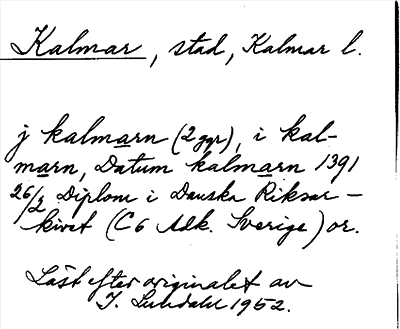 Kalmar, stad, Kalmar l.
j kalmarn (2 ggr), i kal-
marn, Datum kalmarn 1391
26/2 Diplom i Danska Riksar-
kivet (C6 Udk. Sverige) or.
Läst efter originalet av
I. Lindahl 1952.